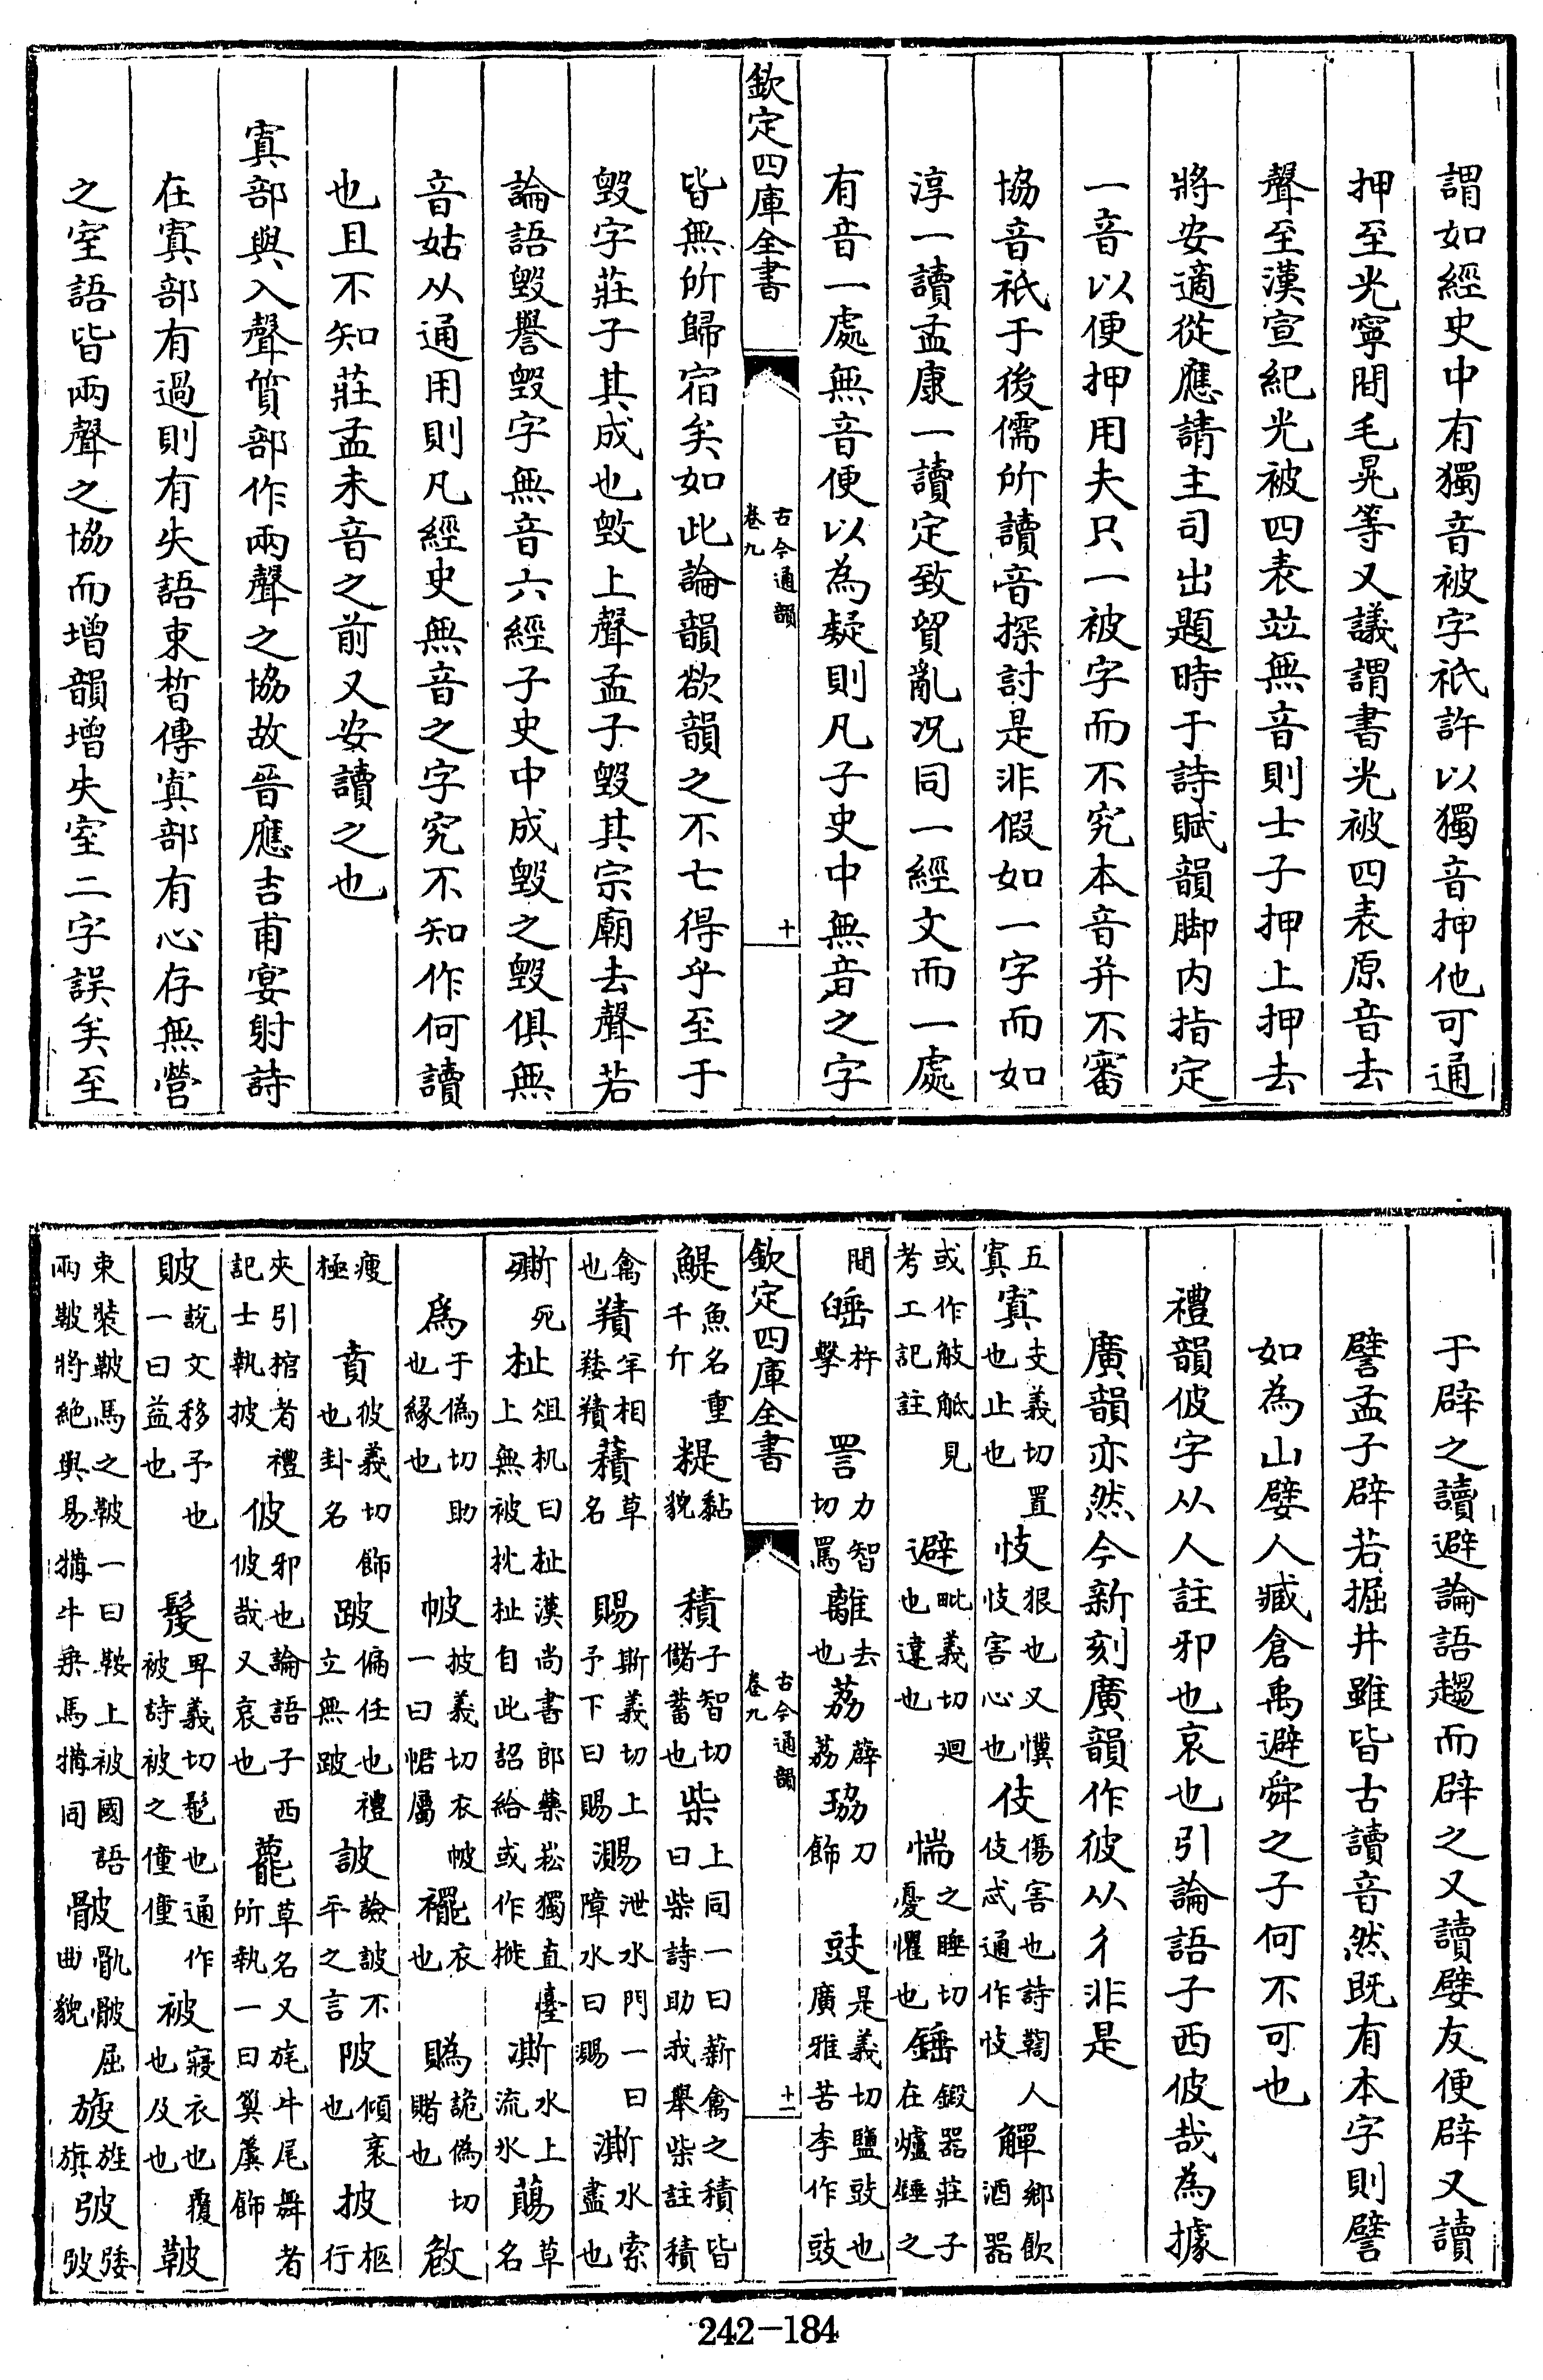 謂如經史中有獨音被字祇許以獨音押他可通
押至光寧間毛晃等又議謂書光被四表原音去
聲至漢宣紀光被四表竝無音則士子押上押去
將安適從應請主司出題時于詩賦韻脚内指定
一音以便押用夫只一被字而不究本音并不審
協音祇于後儒所讀音探討是非假如一字而如
淳一讀孟康一讀定致貿亂况同一經文而一處
有音一處無音便以為疑則凡子史中無音之字
欽定四庫全書
古今通韻
卷九
十
皆無所歸宿矣如此論韻欲韻之不七得乎至于
毁字莊子其成也毁上聲孟子毁其宗廟去聲若
論語毁譽毁字無音六經子史中成毁之毁俱無
音姑从通用則凡經史無音之字究不知作何讀
也且不知莊孟未音之前又安讀之也
寘部與入聲質部作兩聲之協故晉應吉甫宴射詩
在寘部有過則有失語束晳傳寘部有心存無營
之室語皆兩聲之協而增韻增失室二字誤矣至
于辟之讀避論語趨而辟之又讀嬖友便辟又讀
譬孟子辟若掘井雖皆古讀音然既有本字則譬
如為山嬖人臧倉禹避舜之子何不可也
禮韻佊字从人註邪也哀也引論語子西佊哉為據
廣韻亦然今新刻廣韻作彼从彳非是
五
寘
寘支義切置
也止也
忮狠也又懻
忮害心也
伎傷害也詩鞫人
伎忒通作忮
觶鄉飲
酒器
或作觗觝見
考工記註
避毗義切廻
也違也
惴之睡切
憂懼也
錘鍛器莊子
在爐錘之
間
㩾杵
擊
詈力智
切罵
離去
也
荔薜
荔
珕刀
飾
豉是義切鹽豉也
廣雅苦李作豉
欽定四庫全書
古今通韻
卷九
十一
鯷魚名重
千斤
䊓黏
貌
積子智切
儲蓄也
柴上同一曰薪禽之積皆
曰柴詩助我舉柴註積
禽
也
羵羊相
羠羵
䔳草
名
賜斯義切上
予下曰賜
㵃泄水門一曰
障水曰㵃
澌水索
盡也
㒋死
杫俎机曰杫漢尚書郎藥崧獨直臺
上無被枕杫自此詔給或作㯕
凘水上
流氷
蕮草
名
為于偽切助
也緣也
帔披義切衣帔
一曰帬屬
襬衣
也
賵詭偽切
賭也
㱦
瘦
極
賁彼義切飾
也卦名
跛偏任也禮
立無跛
詖譣詖不
平之言
陂傾衺
也
披柩
行
夾引棺者禮
記士執披
佊邪也論語子西
佊哉又哀也
䕗草名又旄牛尾舞者
所執一曰㒸虡飾
貱說文移予也
一曰益也
髲卑義切髢也通作
被詩被之僮僮
被寢衣也覆
也及也
鞁
束裝鞁馬之鞁一曰鞍上被國語
兩鞁將絶與易犕牛乗馬犕同
骳骩骳屈
曲貌
旇旌
旗
㢰㢮